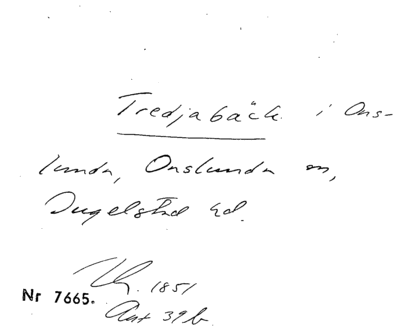 Tredjabäck i Ons-
lunda, Onslunda sn,
Ingelstad hd.
1851
Nr 7665.
Akt 39b